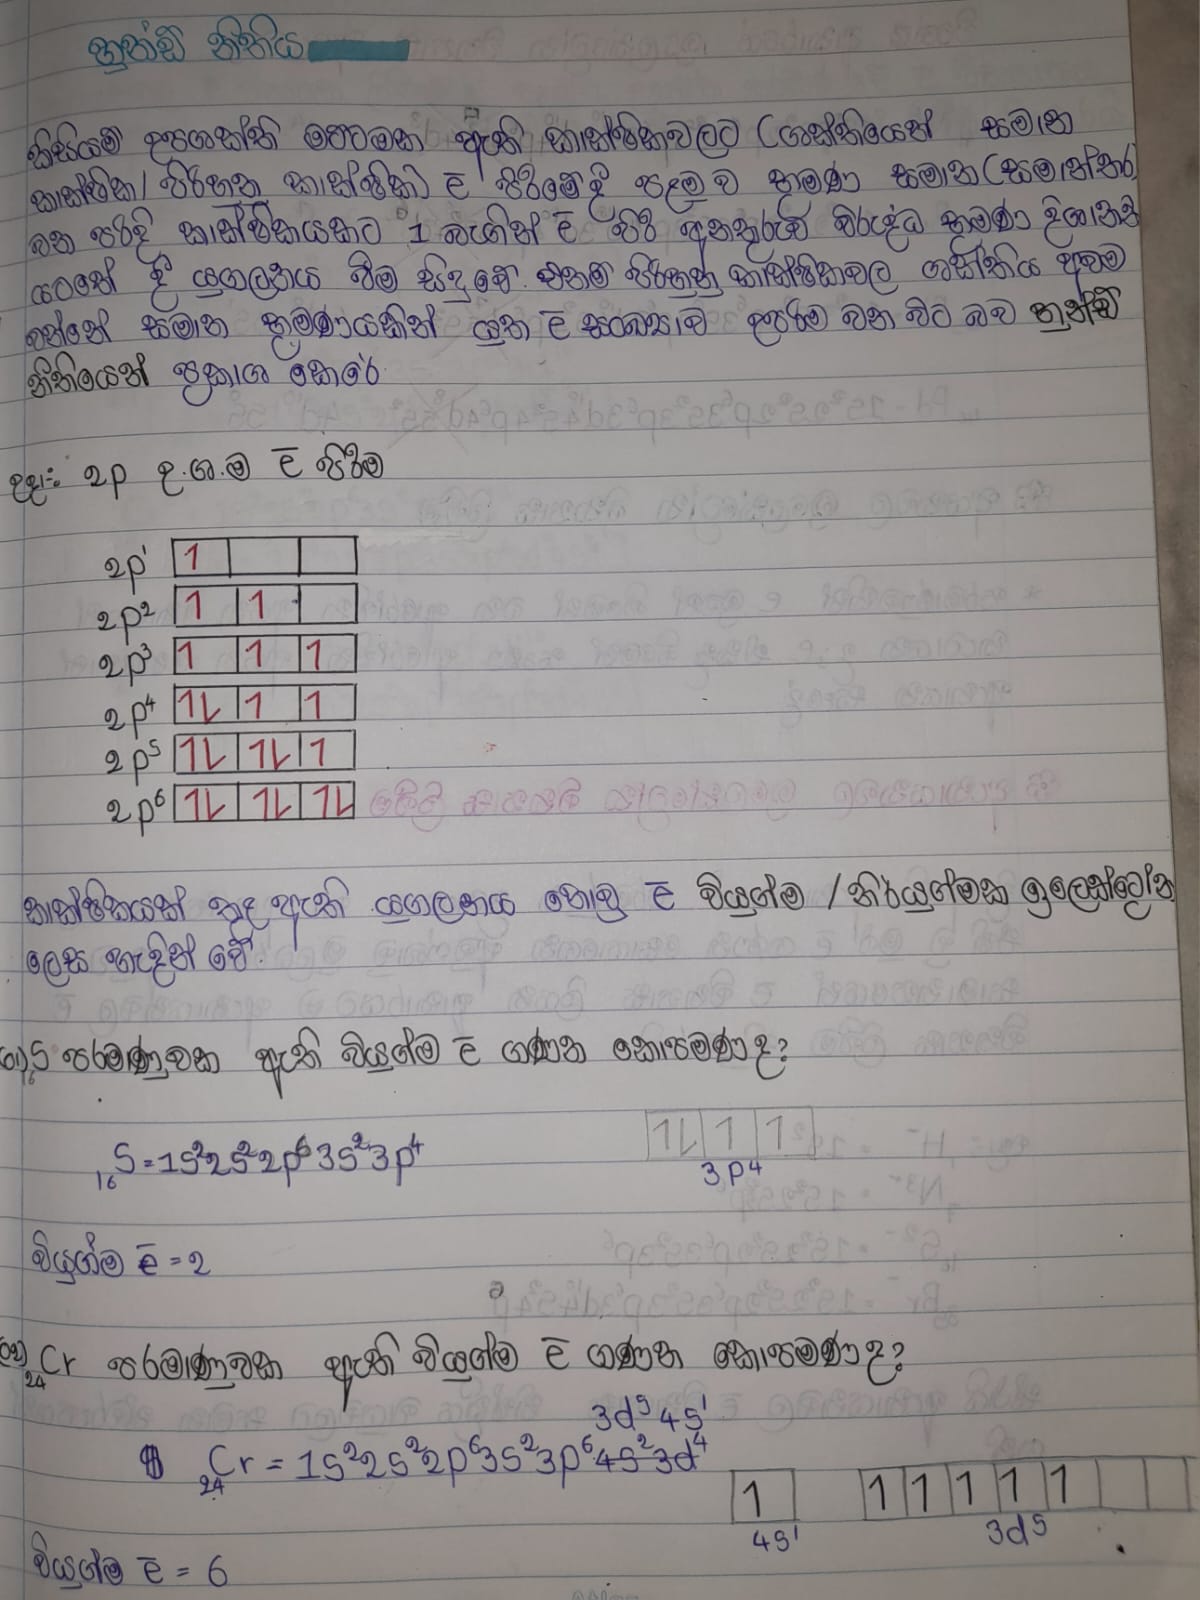 හුන්ඩ් නීතිය
කිසියම් උපශක්ති මට්ටමක ඇති කාක්ෂිකවලට (ශක්තියෙන් සමාන
කාක්ෂික/ පිරිහුනු කාක්ෂික) ē පිරීමේ දී පළමු ව භ්‍රමණ සමාන (සමාන්තර)
වන පරිදි කාක්ෂිකයකට 1 බැගින් ē පිරී අනතුරුව විරුද්ධ භ්‍රමණ දිශානති
යටතේ දී යුගලනය වීම සිදු වේ. එනම් පිරිහුනු කාක්ෂිකවල ශක්තිය අවම
වන්නේ සමාන භ්‍රමණයකින් යුත ē සංඛ්‍යාව උපරිම වන විට බව හුන්ඩ්
නීතියෙන් ප්‍රකාශ කෙරේ.
උදා:- 2p උ.ශ.ම ē පිරීම
2p¹ 1
2p² 1 1
2p³ 1 1 1
2p⁴ 1⇂ 1 1
2p⁵ 1⇂ 1⇂ 1
2p⁶ 1⇂ 1⇂ 1⇂
කාක්ෂිකයක් තුළ ඇති යුගලනය නොවු ē වියුග්ම / නිර්යුග්මක ඉලෙක්ට්‍රෝන
ලෙස හැඳින් වේ.
₁₆S පරමාණුවක ඇති වියුග්ම ē ගණන කොපමණ ද?
₁₆S = 1s²2s²2p⁶3s²3p⁴ 1⇂ 1 1
3p⁴
වියුග්ම ē = 2
₂₄Cr පරමාණුවක ඇති වියුග්ම ē ගණන කොපමණ ද?
3d⁵4s¹
₂₄Cr = 1s²2s²2p⁶3s²3p⁶4s²3d⁴
1 1 1 1 1 1
4s¹ 3d⁵
වියුග්ම ē = 6